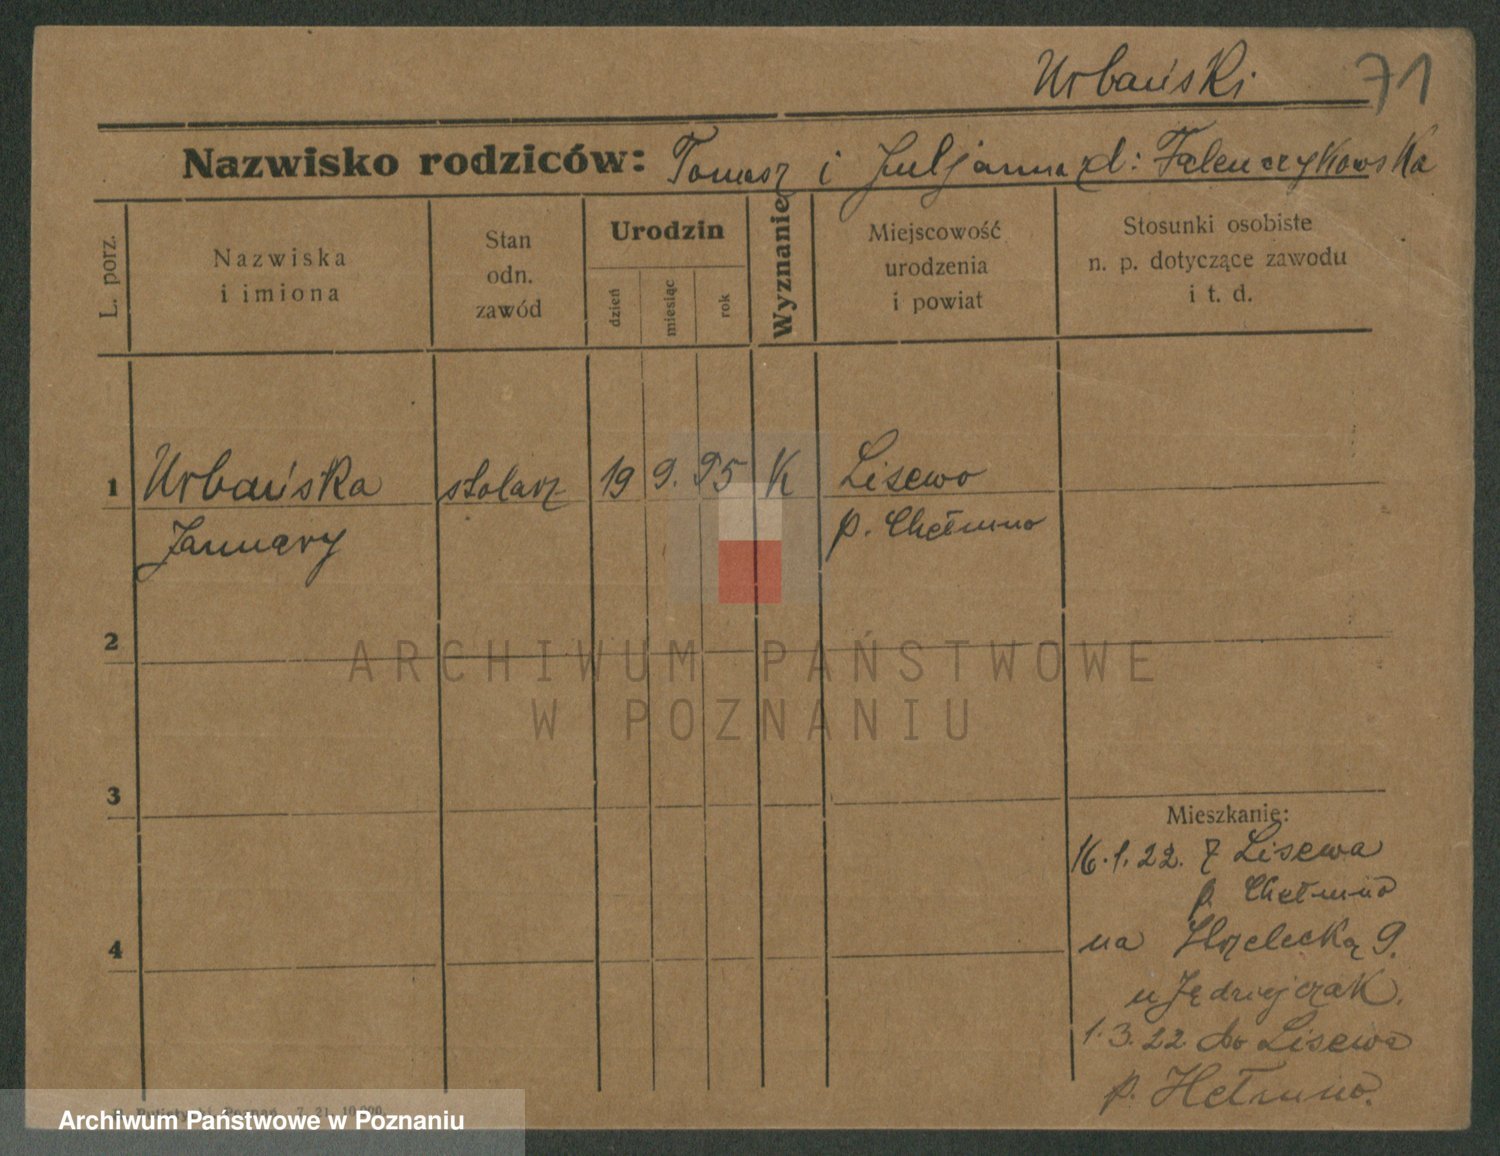 Urbański 71
Nazwisko rodziców: Tomasz i Juljanna d: Falenczykowska
L. porz.
Nazwiska
i imiona
Stan
odn.
zawód
Urodzin
dzień
miesiąc
rok
Wyznanie
Miejscowość
urodzenia
i powiat
Stosunki osobiste
n. p. dotyczące zawodu
i t. d.
1 Urbańska stolarz 19 9. 95 K Lisewo
January p. Chełmno
2
ARCHIWUM PAŃSTWOWE
W POZNANIU
3
Mieszkanie:
16.1.22. z Lisewa
p. Chełmno
4
na 9.
u Jędrzejczak.
1.3.22 do Lisewa
p. Hełmno.
Archiwum Państwowe w Poznaniu